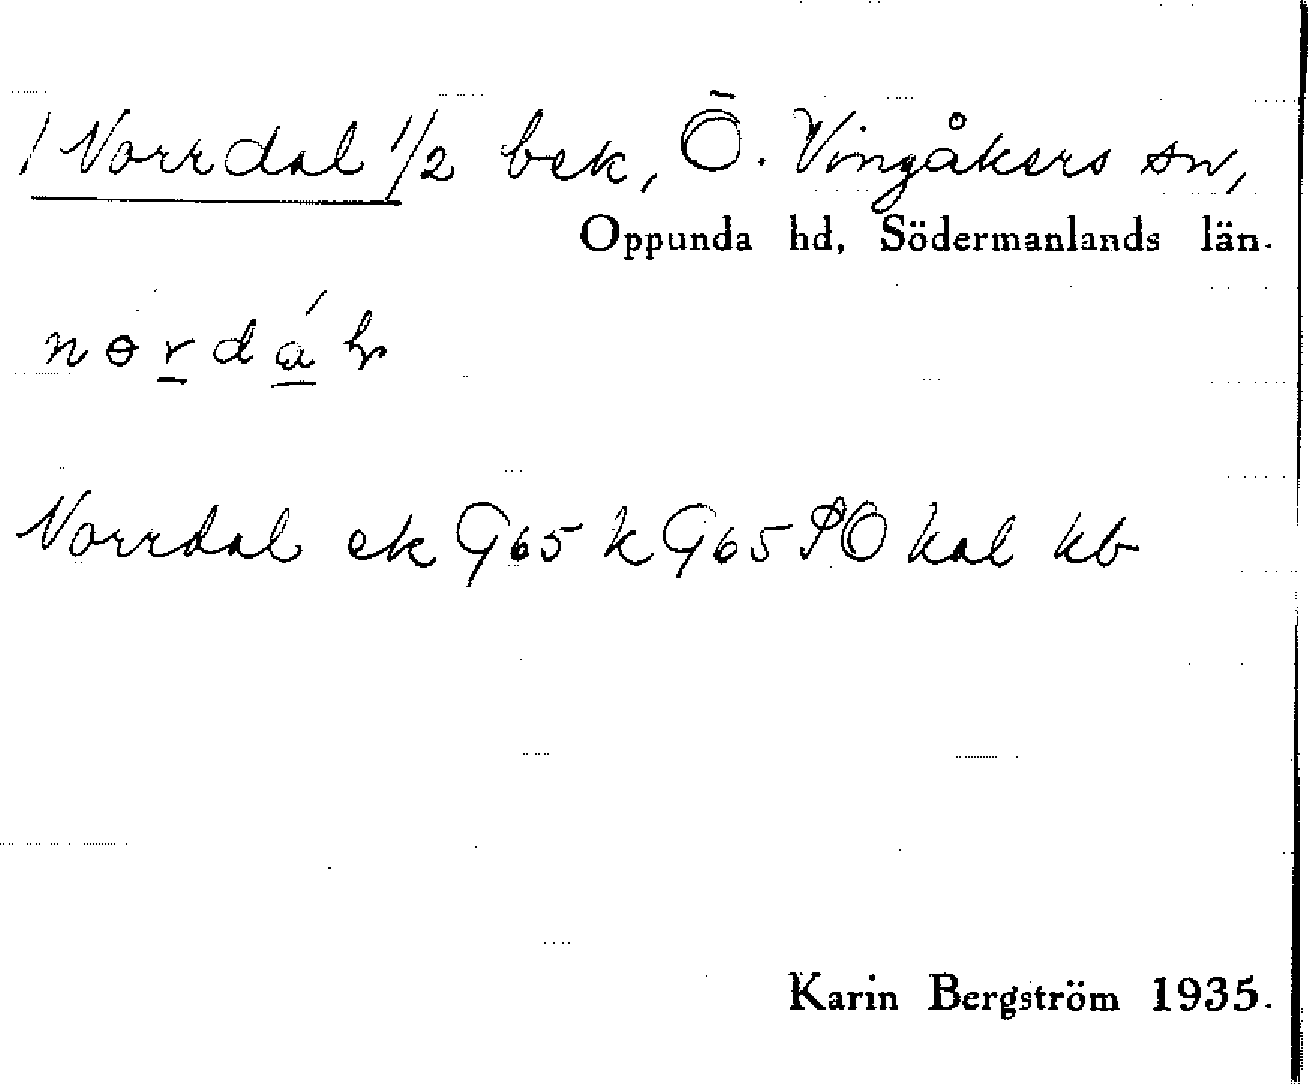 / Norrdal 1/2 bek, Ö. Vingåkers sn,
Oppunda hd, Södermanlands län.
Norrdal ek G65 k G65 SO kal kb
Karin Bergström 1935.